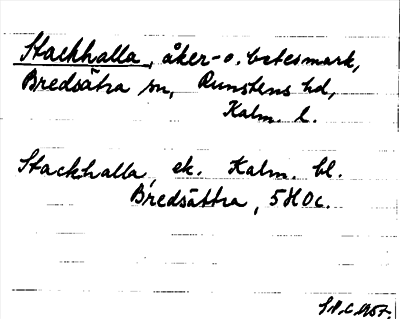 Stackhalla, åker- o. betesmark,
Bredsätra sn, Runstens hd,
Kalm. l.
Stackhalla, ek. Kalm. bl.
Bredsättra, 5H0c.
1957.